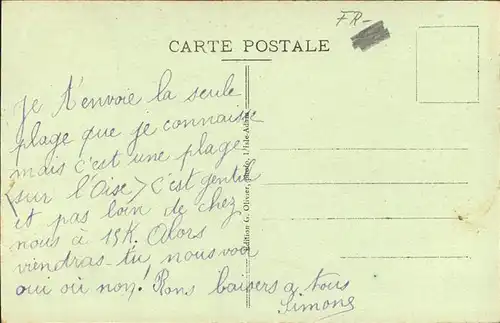 FR-
CARTE POSTALE
Je t'envoie la seule
plage que je connaisse
mais c'est une plage
(sur l'Oise) c'est gentil
et pas loin de chez
nous à 15K. Alors
viendras-tu nous voir
oui ou non! Bons baisers à tous
Simone
Edition G. Olivier, photo. L'Isle-Adam